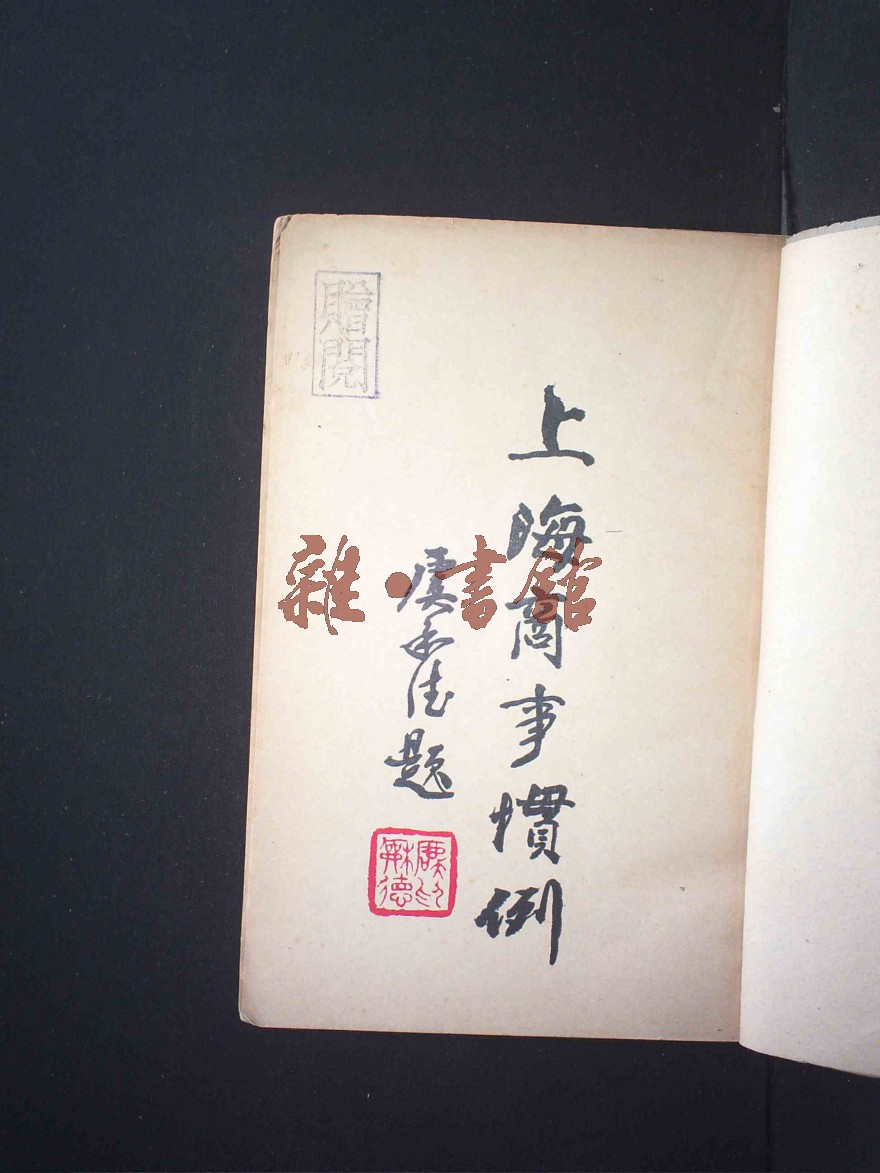 上海商事慣例
虞和德題
虞和德印
贈閱
雜·書館